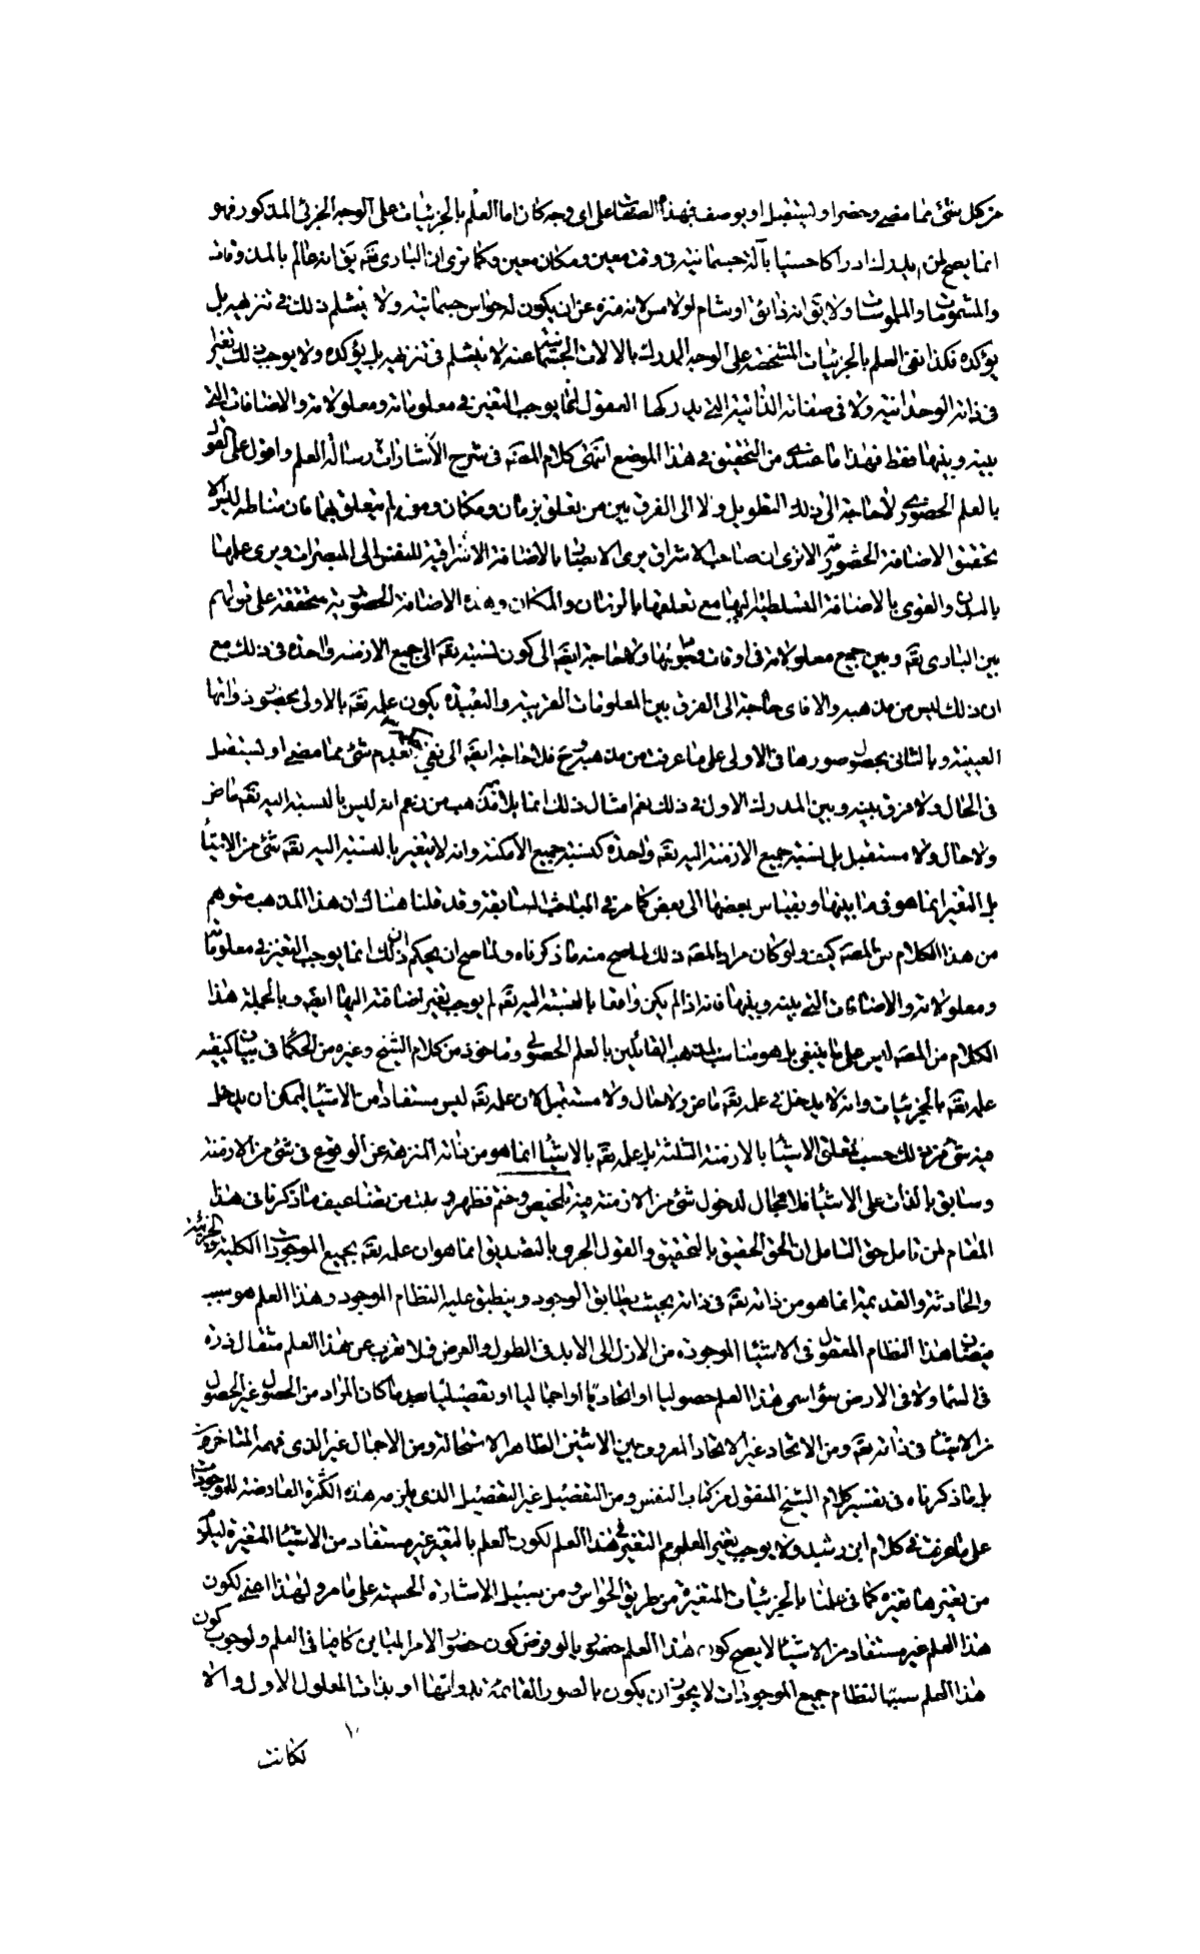 من كل شئ مما مضى وحضر او يستقبل او يوصف بهذه الصفات على اى وجه كان اما العلم بالجزئيات على الوجه الجزئى المذكور فهو
انما يصح لمن يدرك ادراكا حسيا بآلة جسمانية فى وقت معين ومكان معين وكما نرى ان البارى تعه يق انه عالم بالمذوقات
والمشمومات والملموسات ولا يق انه ذائق او شام او لامس لانه منزه عن ان يكون له حواس جسمانية ولا ينثلم ذلك فى تنزيهه بل
يؤكده فكذا نفى العلم بالجزئيات المشخصة على الوجه المدرك بالالات الجسمانية عنه لا ينثلم فى تنزيهه بل يؤكده ولا يوجب ذلك تغيرا
فى ذاته الوحدانية ولا فى صفاته الذاتية التى يدركها العقول انما يوجب التغير فى معلوماته ومعلولاته والاضافات التى
بينه وبينها فقط فهذا ما عندى من التحقيق فى هذا الموضع انتهى كلام المصه فى شرح الاشارات ورسالة العلم واقول على القول
بالعلم الحضورى لا حاجة الى ذلك التطويل ولا الى الفرق بين من يتعلق بزمان ومكان ومن لم يتعلق بهما فان مناطه ليس الا
تحقق الاضافة الحضورية الا ترى ان صاحب الاشراق يرى الابصار بالاضافة الاشراقية للنفس الى المبصرات ويرى علمها
بالبدن والقوى بالاضافة التسلطية اليها مع تعلقها بالزمان والمكان وهذه الاضافة الحضورية متحققة على قولهم
بين البارى تعه وبين جميع معلولاته فى اوقات وجوداتها ولا حاجة ايضه الى كون نسبته تعه الى جميع الازمنة واحدة فى ذلك مع
ان ذلك ليس من مذهبه والا فاى حاجة الى الفرق بين المعلولات القريبة والبعيدة بكون علمه تعه بالاولى بحضور ذواتها
العينية وبالثانى بحصول صورها فى الاولى على ما عرفت من مذهبه فح فلا حاجة ايضه الى نفى تعدم شئ مما مضى او يستقبل
فى الحال ولا فرق بينه وبين المدرك الاول فى ذلك نعم امثال ذلك انما يلائم مذهب من زعم انه ليس بالنسبة اليه تعه ماض
ولا حال ولا مستقبل بل نسبة جميع الازمنة اليه تعه واحدة كنسبة جميع الامكنة وانه لا يتغير بالنسبة اليه تعه شئ من الاشياء
بل التغير انما هو فى ما بينها وبقياس بعضها الى بعض كما مر فى المباحث السابقة وقد قلنا هناك ان هذا المذهب متوهم
من هذا الكلام من المصه كيف ولو كان مراد المصه ذلك لما صح منه ما ذكرناه ولما صح ان يحكم ان ذلك انما يوجب التغير فى معلوماته
ومعلولاته والاضافات التى بينه وبينها فانه اذا لم يكن واقعا بالنسبة اليه تعه لم يوجب تغير اضافته اليها ايضه وبالجملة هذا
الكلام من المصه ليس على ما ينبغى بل هو مناسب لمذهب القائلين بالعلم الحصولى وماخوذ من كلام الشيخ وغيره من الحكماء فى بيان كيفية
علمه تعه بالجزئيات وانه لا يدخل فى علمه تعه ماض ولا حال ولا مستقبل لان علمه تعه ليس مستفادا من الاشياء ليمكن ان يدخل
فيه شئ من ذلك حسب تعلق الاشياء بالازمنة الثلثة بل علمه تعه بالاشياء انما هو من ذاته المنزهة عن الوقوع فى شئ من الازمنة
وسابق بالذات على الاشياء فلا مجال لدخول شئ من الازمنة فيه تلخيص وختم فظهر وبدا من تضاعيف ما ذكرنا فى هذا
المقام لمن تامل حق التامل ان الحق الحقيق بالتحقيق والقول الحرى بالتصديق انما هو ان علمه تعه بجميع الموجودات الكلية والجزئية
والحادثة والقديمة انما هو من ذاته تعه فى ذاته بحيث يطابق الوجود وينطبق عليه النظام الموجود وهذا العلم هو سبب
فيضان هذا النظام المعقول فى الاشياء الموجودة من الازل الى الابد فى الطول والعرض فلا يعزب عن هذا العلم مثقال ذرة
فى السماء ولا فى الارض سواء سمى هذا العلم حصوليا او اتحاديا او اجماليا او تفصيليا بعد ما كان المراد من الحصول غير الحصول
من الاشياء فى ذاته تعه ومن الاتحاد غير الاتحاد المعروف بين الاثنين الظاهر الاستحالة ومن الاجمال غير الذى فهمه المتاخرون
بل ما ذكرناه فى تفسير كلام الشيخ المنقول من كتاب النفس ومن التفصيل غير التفصيل الذى يلزمه هذه الكثرة العارضة للموجودات
على ما عرفت فى كلام ابن رشيد ولا يوجب تغير المعلوم التغير فى هذا العلم لكون العلم بالمتغير غير مستفاد من الاشياء المتغيرة ليلزم
من تغيرها تغيره كما فى علمنا بالجزئيات المتغيرة من طريق الحواس ومن سبيل الاشارة الحسية على ما مر ولهذا اعنى لكون
هذا العلم غير مستفاد من الاشياء لا يصح كون هذا العلم حضوريا لو فرض كون حضور الامر المباين كافيا فى العلم ولوجوب كون
هذا العلم سببا لنظام جميع الموجودات لا يجوز ان يكون بالصور القائمة بذواتها او بذات المعلول الاول والا
لكانت